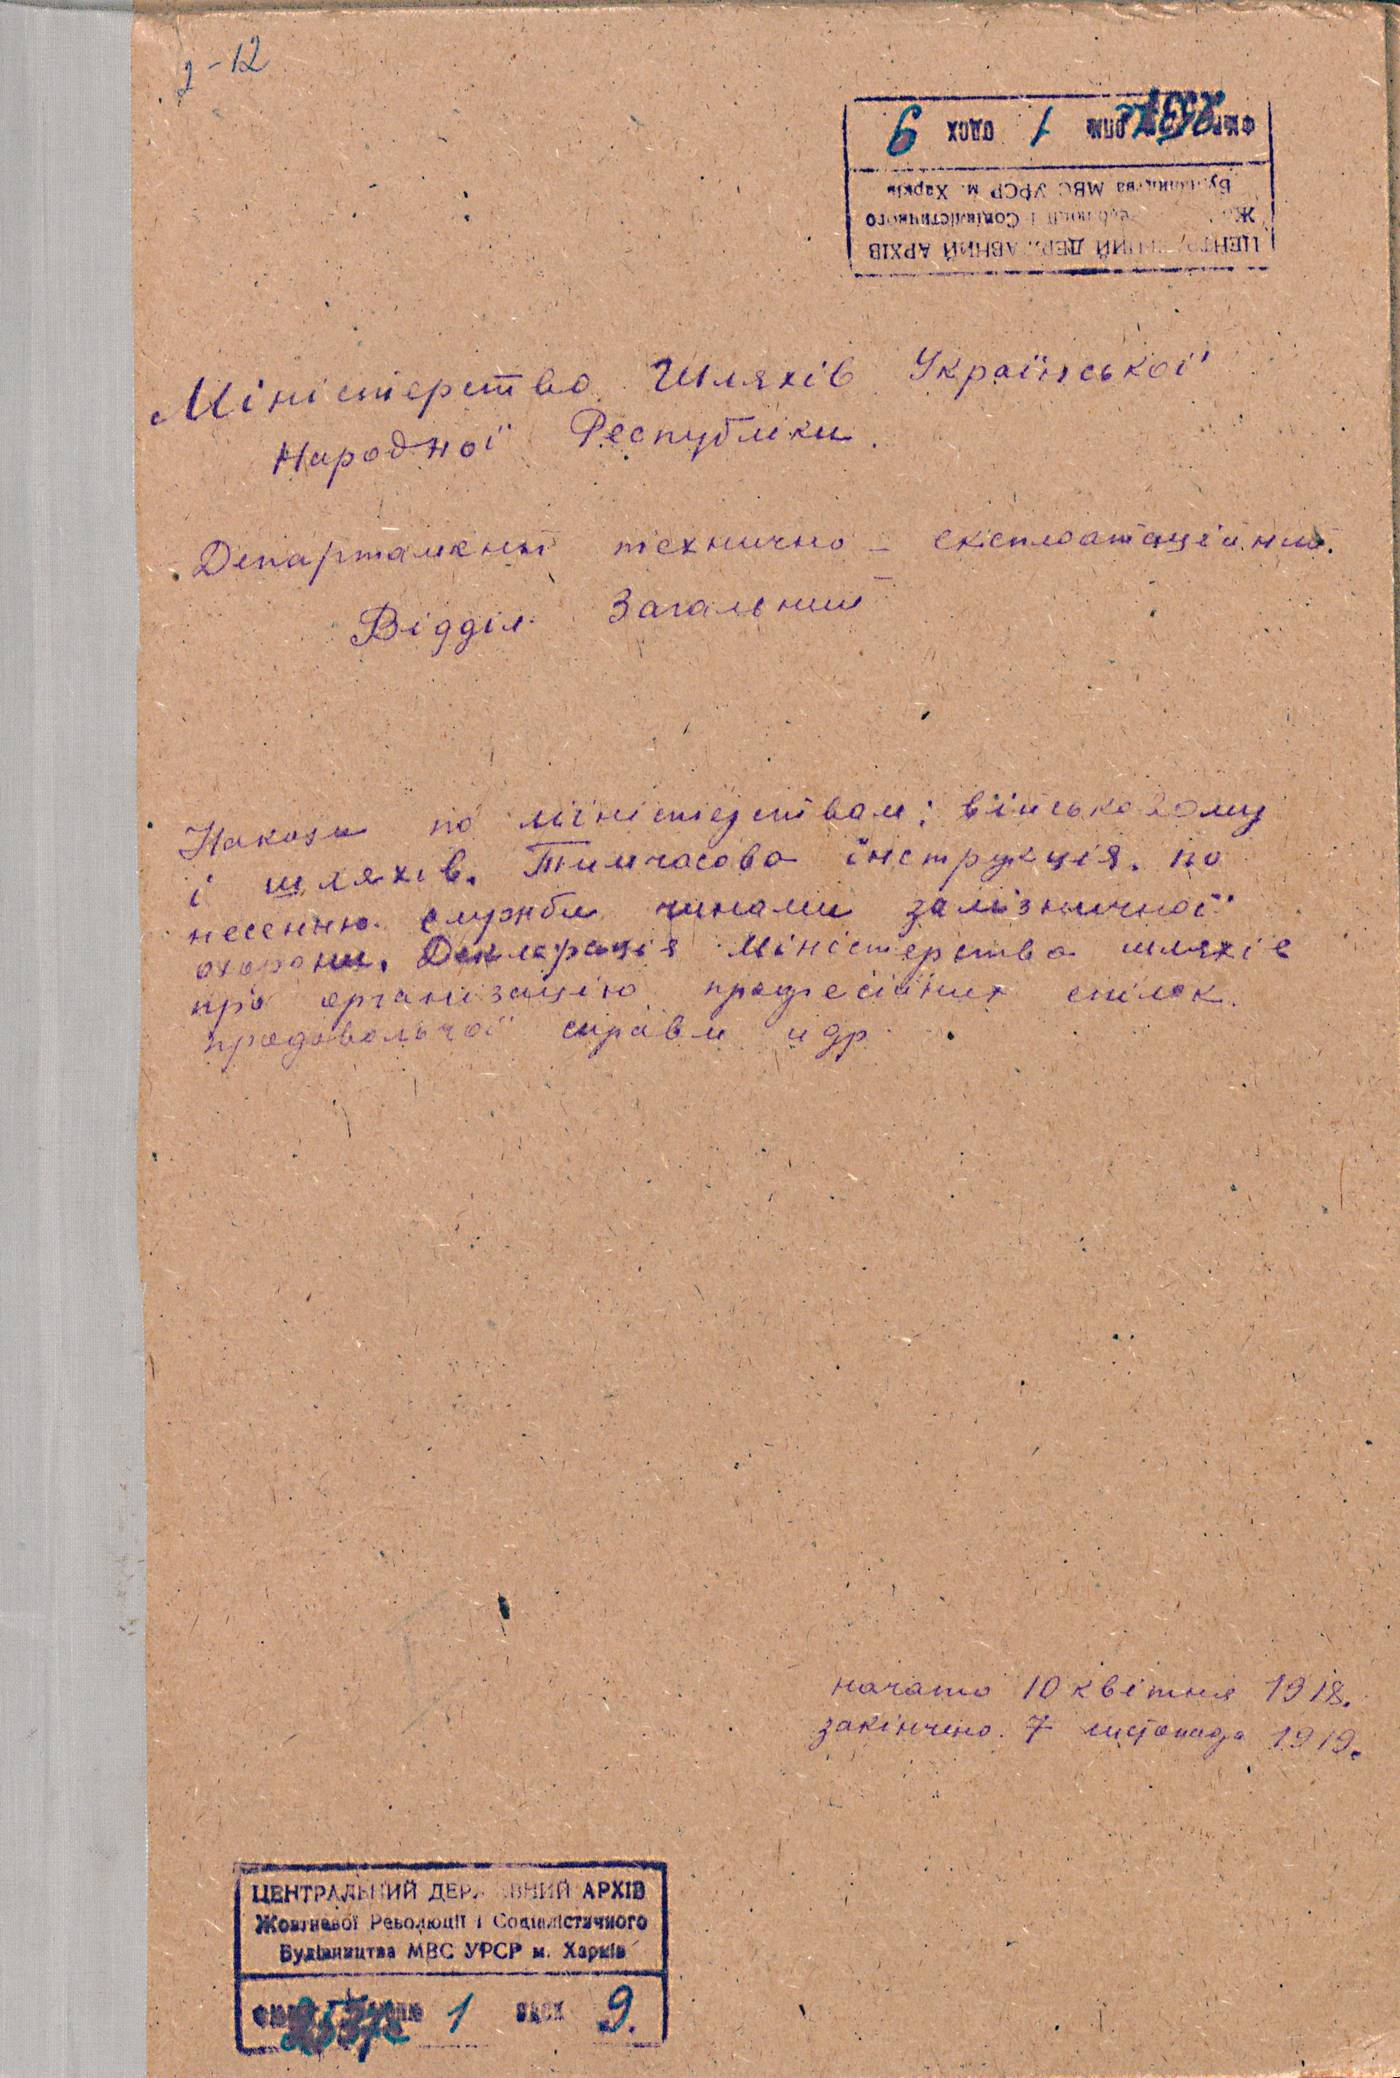 2-12
ЦЕНТРАЛЬНИЙ ДЕРЖАВНИЙ АРХІВ
Жовтневої Революції і Соціалістичного
Будівництва МВС УРСР м. Харків
опис 1 одсх 9
Міністерство Шляхів Української
Народної Республіки.
Департамент технично – експлоатаційний.
Відділ Загальний
Накази по міністерствам: військовому
і шляхів. Тимчасова інструкція. по
несенню службы чинами залізничної
охорони. Декларація Міністерства шляхів
про організацію професійних спілок.
продовольчої справи и др.
начато 10 квітня 1918.
закінчено. 7 листопада 1919.
ЦЕНТРАЛЬНИЙ ДЕРЖАВНИЙ АРХІВ
Жовтневої Революції і Соціалістичного
Будівництва МВС УРСР м. Харків
1 одсх 9.